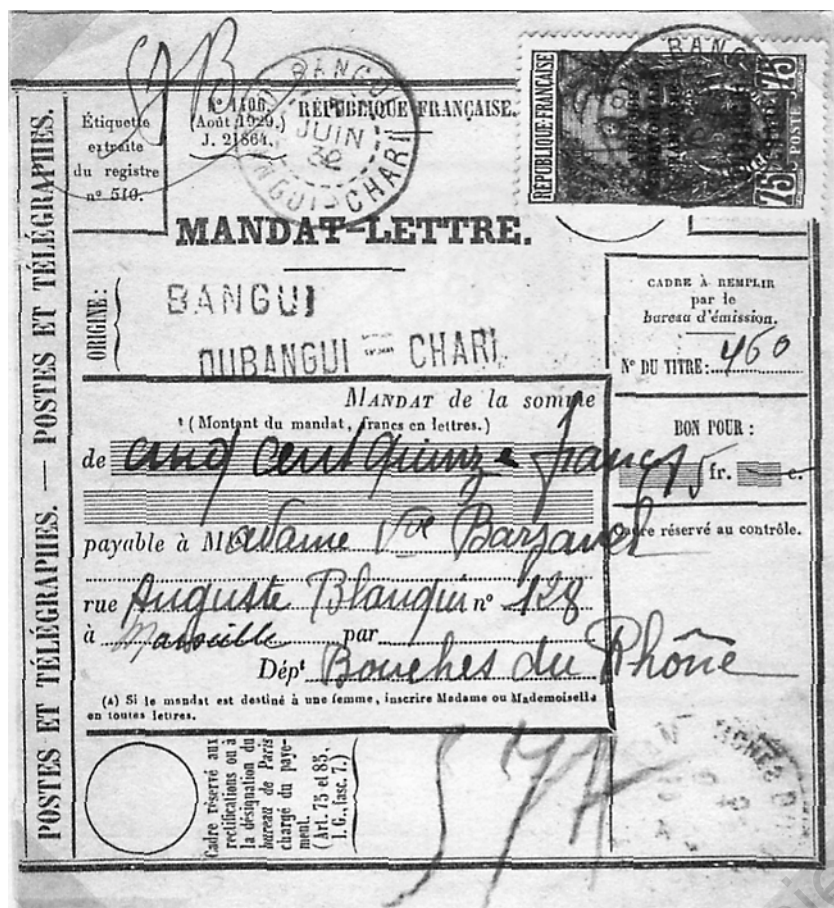 POSTES ET TÉLÉGRAPHES. — POSTES ET TÉLÉGRAPHES.
Étiquette
extraite
du registre
n° 510.
N° 1406.
(Août 1929.)
J. 21864.
RÉPUBLIQUE FRANÇAISE.
BANGUI
JUIN
32
OUBANGUI-CHARI
RÉPUBLIQUE FRANÇAISE
75
POSTE
75
BANG
MANDAT-LETTRE.
ORIGINE:
BANGUI
OUBANGUI - CHARI
CADRE À REMPLIR
par le
bureau d'émission.
N° DU TITRE: 460
MANDAT de la somme
(Montant du mandat, francs en lettres.)
de cinq cent quinze francs
BON POUR :
fr. c.
payable à M Madame Vve Barjavel
Cadre réservé au contrôle.
rue Auguste Blanqui n° 128
à Marseille par
Dépt Bouches du Rhône
(A) Si le mandat est destiné à une femme, inscrire Madame ou Mademoiselle
en toutes lettres.
Cadre réservé aux
rectifications ou à
la désignation du
bureau de Paris
chargé du paye-
ment.
(Art. 75 et 85,
I. G., fasc. 7.)